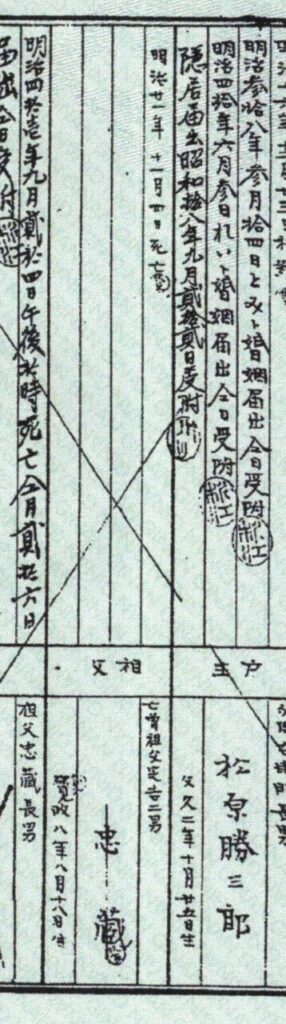 明治参拾八年参月拾四日とみト婚姻届出仝日受附
明治四拾年六月参日れいト婚姻届出仝日受附
隠居届出昭和拾八年九月貳拾貳日受附
戸主
松原勝三郎
文久二年十月廿五日生
明治廿一年十一月四日死亡
祖父
亡曽祖父定吉二男
忠藏
寛政八年八月十八日生
明治四拾壱年九月貳拾四日午後拾時死亡仝月貳拾六日
届出仝日受附
祖父忠藏長男